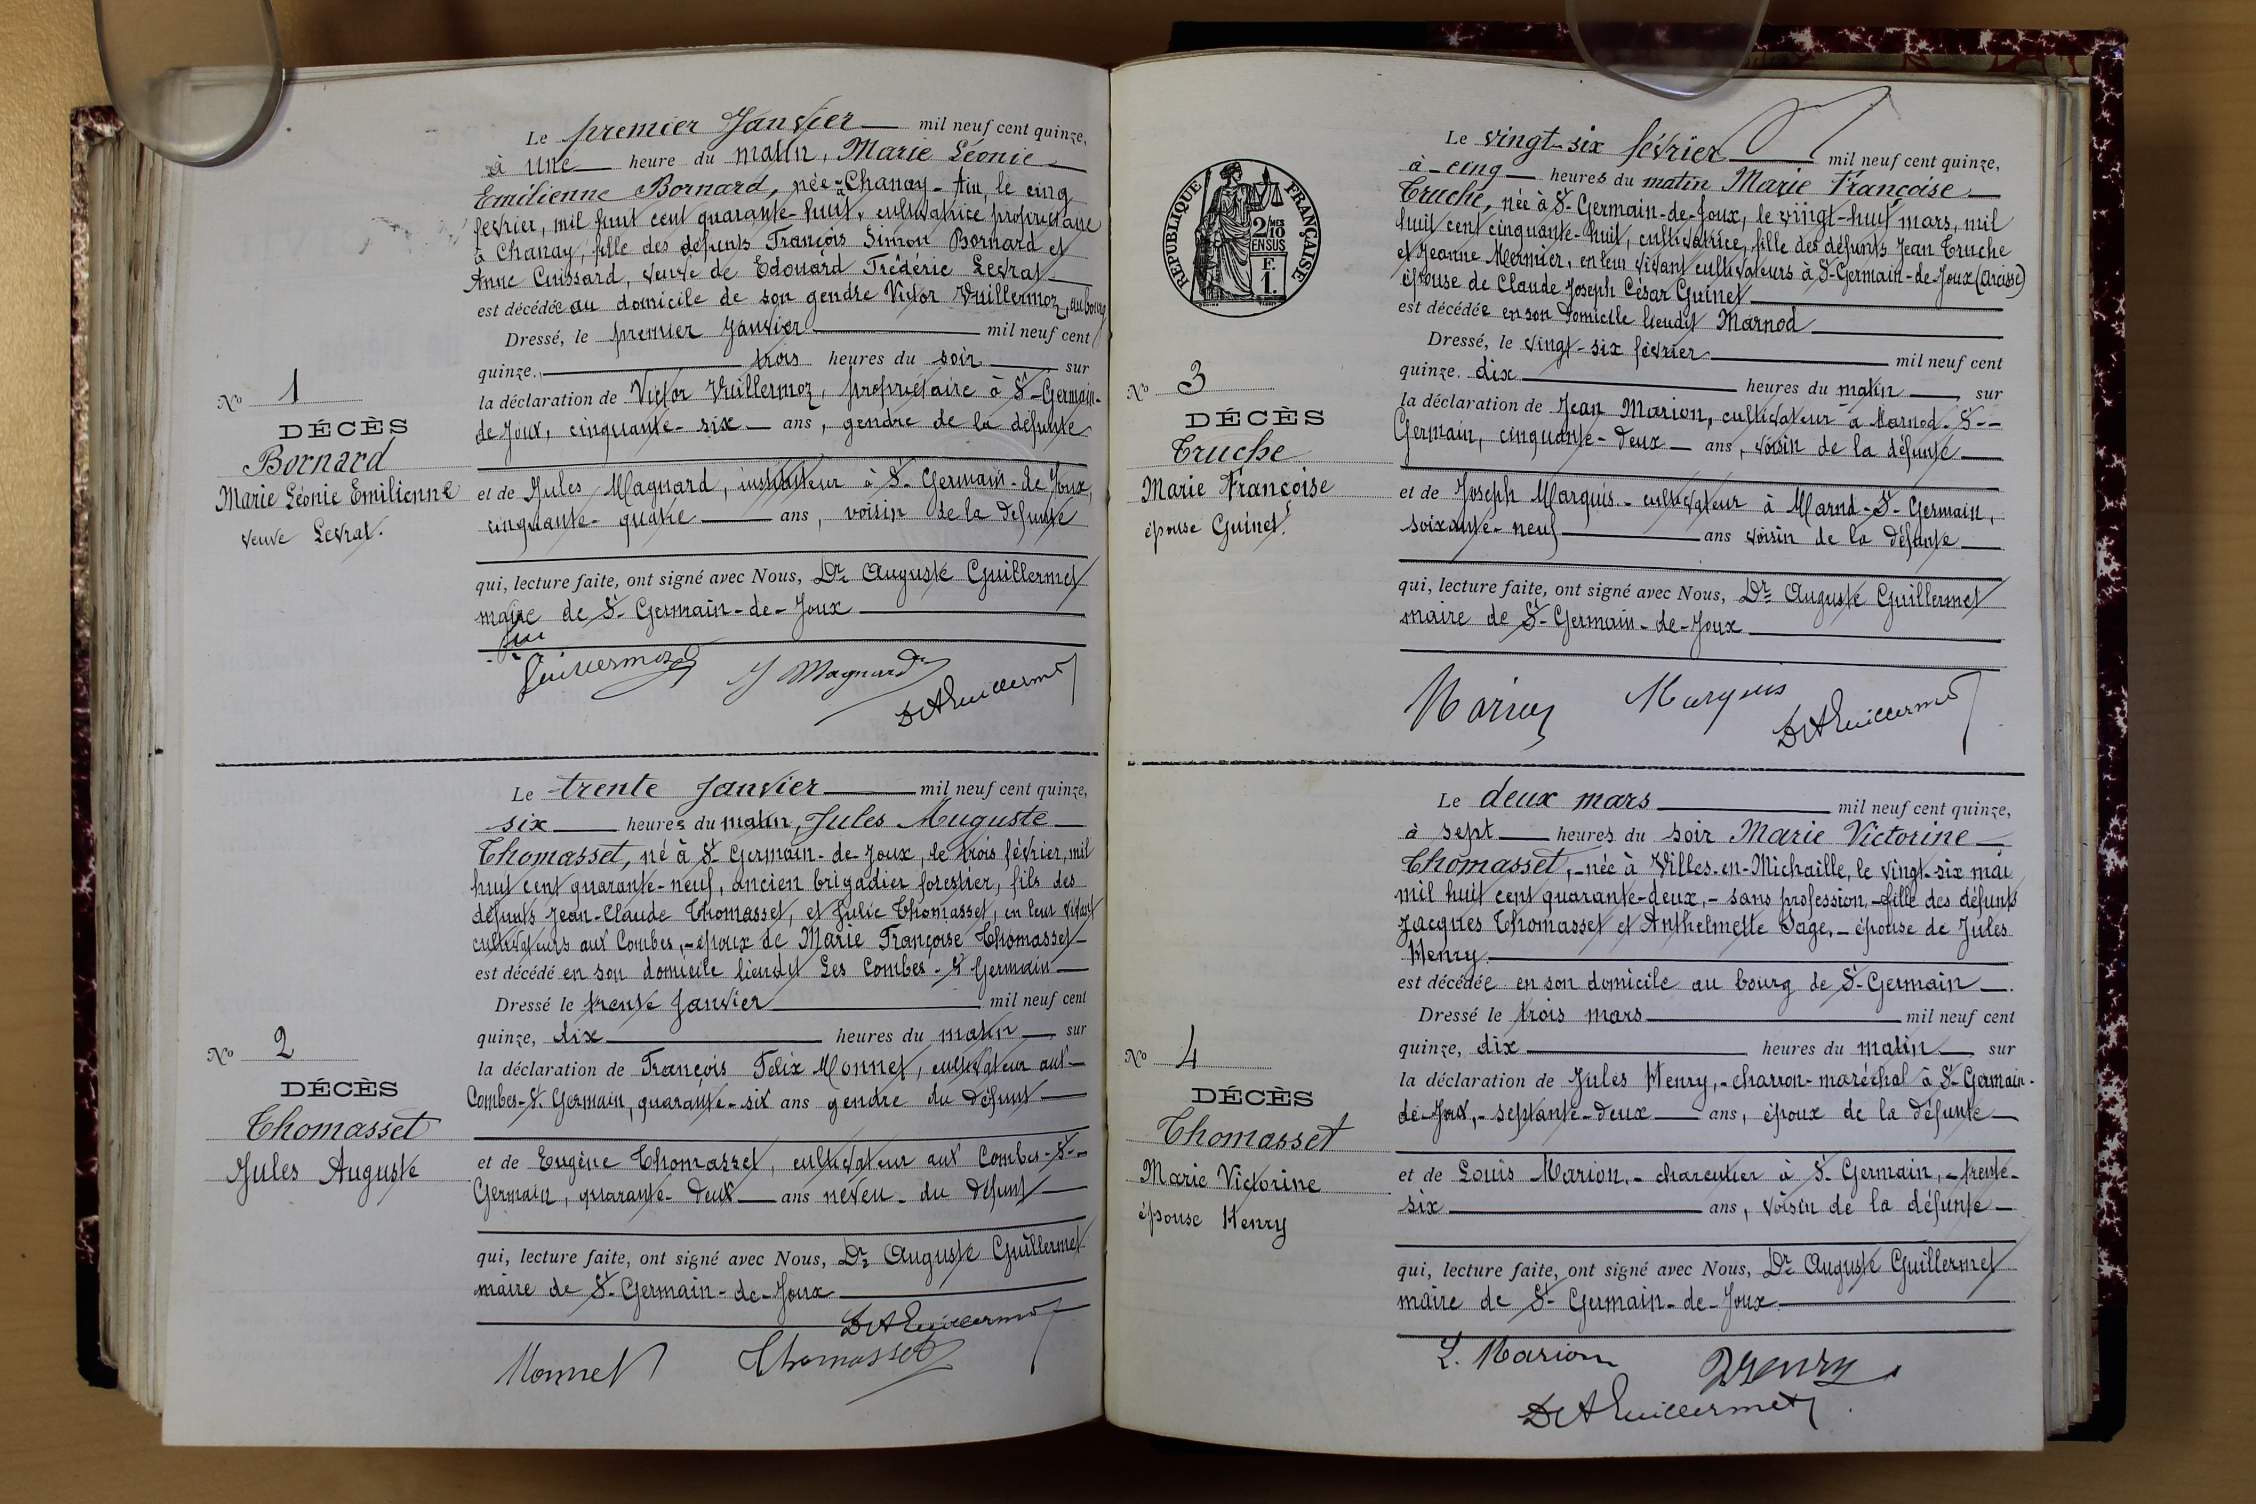 Le premier Janvier mil neuf cent quinze,
à une heure du matin, Marie Léonie
Emilienne Bornard, née à Chanay - Ain, le cinq
février, mil huit cent quarante-huit, cultivatrice propriétaire
à Chanay, fille des défunts François Simon Bornard et
Anne Cuissard, veuve de Edouard Frédéric Levrat
est décédée au domicile de son gendre Victor Vuillermoz, au bourg
Dressé, le premier Janvier mil neuf cent
quinze. trois heures du soir sur
la déclaration de Victor Vuillermoz, propriétaire à St-Germain-
de Joux, cinquante-six ans, gendre de la défunte
et de Jules Magnard, instituteur à St-Germain-de Joux,
cinquante-quatre ans, voisin de la défunte
qui, lecture faite, ont signé avec Nous, Dr Auguste Guillermet
maire de St-Germain-de-Joux
J Magnard
DrAGuillermet
No 1
DÉCÈS
Bornard
Marie Léonie Emilienne
veuve Levrat.
Le trente Janvier mil neuf cent quinze,
six heures du matin, Jules Auguste
Thomasset, né à St Germain-de-Joux, le trois février, mil
huit cent quarante-neuf, ancien brigadier forestier, fils des
défunts Jean-Claude Thomasset, et Julie Thomasset, en leur vivant
cultivateurs aux Combes, - époux de Marie Françoise Thomasset-
est décédé en son domicile lieudit Les Combes - St Germain
Dressé le trente Janvier mil neuf cent
quinze, dix heures du matin sur
la déclaration de François Félix Monnet, cultivateur aux
Combes-St Germain, quarante-six ans gendre du défunt
et de Eugène Thomasset, cultivateur aux Combes-St-
Germain, quarante-deux ans neveu du défunt
qui, lecture faite, ont signé avec Nous, Dr Auguste Guillermet
maire de St-Germain-de-Joux
DrAGuillermet
Monnet Thomasset
No 2
DÉCÈS
Thomasset
Jules Auguste
RÉPUBLIQUE FRANÇAISE
2/10 MES
EN SUS
F.
1.
Le vingt-six février mil neuf cent quinze,
à cinq heures du matin Marie Françoise
Truche, née à St-Germain-de-Joux, le vingt-huit mars, mil
huit cent cinquante-huit, cultivatrice, fille des défunts Jean Truche
et Jeanne Mermier, en leur vivant cultivateurs à St-Germain-de-Joux
épouse de Claude Joseph César Guinet
est décédée en son domicile lieudit Marnod
Dressé, le vingt-six février mil neuf cent
quinze. dix heures du matin, sur
la déclaration de Jean Marion, cultivateur à Marnod-St-
Germain, cinquante-deux ans, voisin de la défunte
et de Joseph Marquis.- cultivateur à Marnd-St-Germain,
soixante-neuf ans voisin de la défunte
qui, lecture faite, ont signé avec Nous, Dr Auguste Guillermet
maire de St-Germain-de-Joux
Marion Marquis
DrAGuillermet
No 3
DÉCÈS
Truche
Marie Françoise
épouse Guinet.
Le deux mars mil neuf cent quinze,
à sept heures du soir Marie Victorine
Thomasset, - née à Villes-en-Michaille, le vingt-six mai
mil huit cent quarante-deux, - sans profession, - fille des défunts
Jacques Thomasset et Anthelmette Sage, - épouse de Jules
Henry.
est décédée en son domicile au bourg de St-Germain
Dressé le trois mars mil neuf cent
quinze, dix heures du matin sur
la déclaration de Jules Henry, - charron-maréchal à St-Germain-
de-Joux, - septante-deux ans, époux de la défunte
et de Louis Marion, - charcutier à St-Germain, - trente-
six ans, voisin de la défunte
qui, lecture faite, ont signé avec Nous, Dr Auguste Guillermet
maire de St-Germain-de-Joux
L. Marion Henry
DrAGuillermet
No 4
DÉCÈS
Thomasset
Marie Victorine
épouse Henry